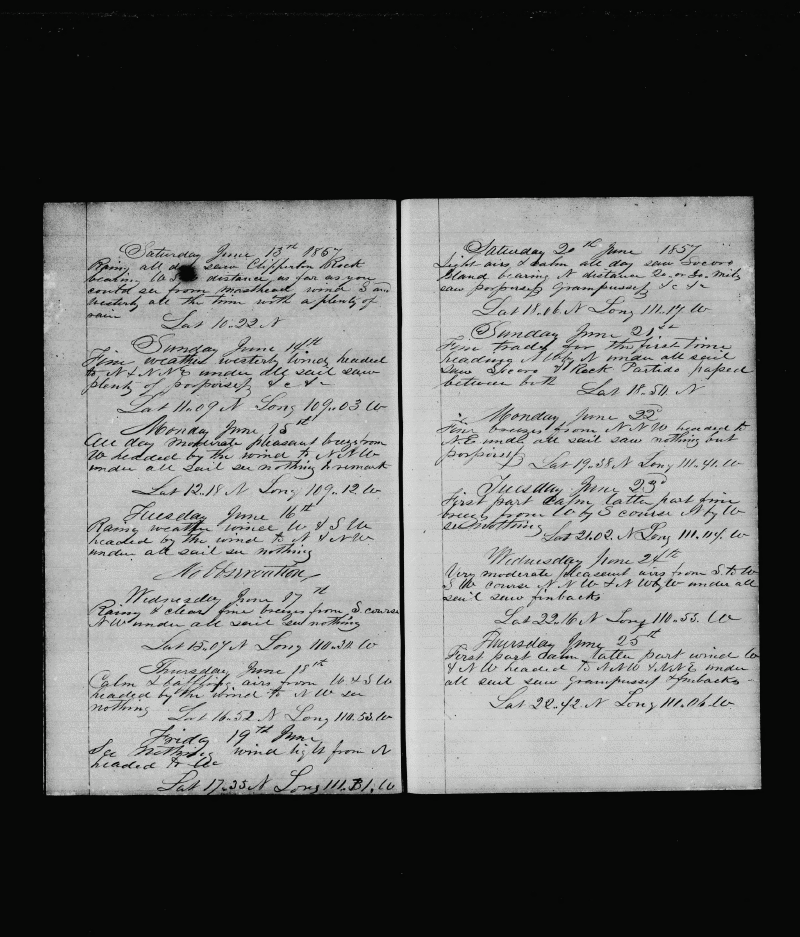 Saturday June 13th 1857
Rainy all day saw Clipperton Rock
bearing W distance as far as you
could see from masthead wind S and
westerly all the time with a plenty of
rain
Lat 10..22 N
Sunday June 14th
Fine weather westerly wind headed
to N & N N E under all sail saw
plenty of porpoises &c &c
Lat 11..09 N Long 109..03 W
Monday June 15th
All day moderate pleasant breeze from
W headded by the wind to N N W
under all sail see nothing to remark
Lat 12..18 N Long 109..12 W
Tuesday June 16th
Rainy weather wind W & S W
headed by the wind to N & N W
under all sail see nothing
No Observation
Wednesday June 17th
Rainy & clear fine breezes from S. course
N W under all sail see nothing
Lat 15..07 N Long 110..30 W
Thursday June 18th
Calm & baffling airs from W & S W
headed by the wind to N W see
nothing
Lat 16..52 N Long 110..53. W
Friday 19th June
See nothing wind light from N
headed to W
Lat 17..35 N Long 111..31. W
Saturday 20th June 1857
Light airs & calm all day saw Socoro
Island bearing N distance 20. or 30. Mils
saw porpoises grampusses &c &c
Lat 18..06 N Long 111..17. W
Sunday June 21st
Fine trades for the first time
heading N W by N under all sail
Saw Socoro & Rock Partido passed
between both Lat 18..54 N
Monday June 22d
Fine breezes from N N W headed to
N. E. under all sail saw nothing but
porpoises
Lat 19..38 N Long 111..41. W
Tuesday June 23d
First part calm latter part fine
breezes from W by S course N by W
see nothing
Lat 21..02. N Long 111..14. W
Wednesday June 24th
Very moderate pleasent airs from S. to W
S W course N N W & N W by W under all
sail saw finbacks
Lat 22..16 N Long 110..55. W
Thursday June 25th
First part calm latter part wind W
& N W headed to N N W & N N E under
all sail saw grampusses & finbacks
Lat 22..42 N Long 111..06 W